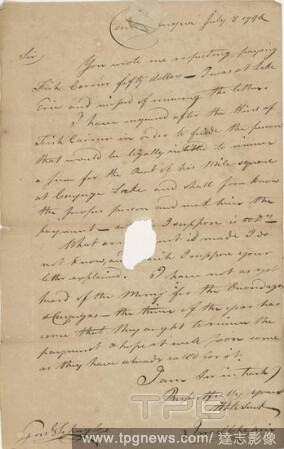 July 8 1796
Sir
You wrote me respecting paying
Fish Carrier fifty dollars – I was at Lake
Erie and missed of receiving the letter.
I have inquired after the Heirs of
Fish Carrier in order to find the person
that would be legally entitled to receive
a sum for the Rent of his Mile square
at Cayuga Lake and shall soon know
the proper person and make him the
payment – I suppose is 50 Drs
What is made I do
not know, I suppose your
letter explained. I have not as yet
heard of the Money for the Onondagas
& Cayugas – the time of the year has
come that they ought to receive the
payment & hope it will soon come
as they have already called for it.
I am Sir in haste
TPG
www.tpgnews.com / 達志影像